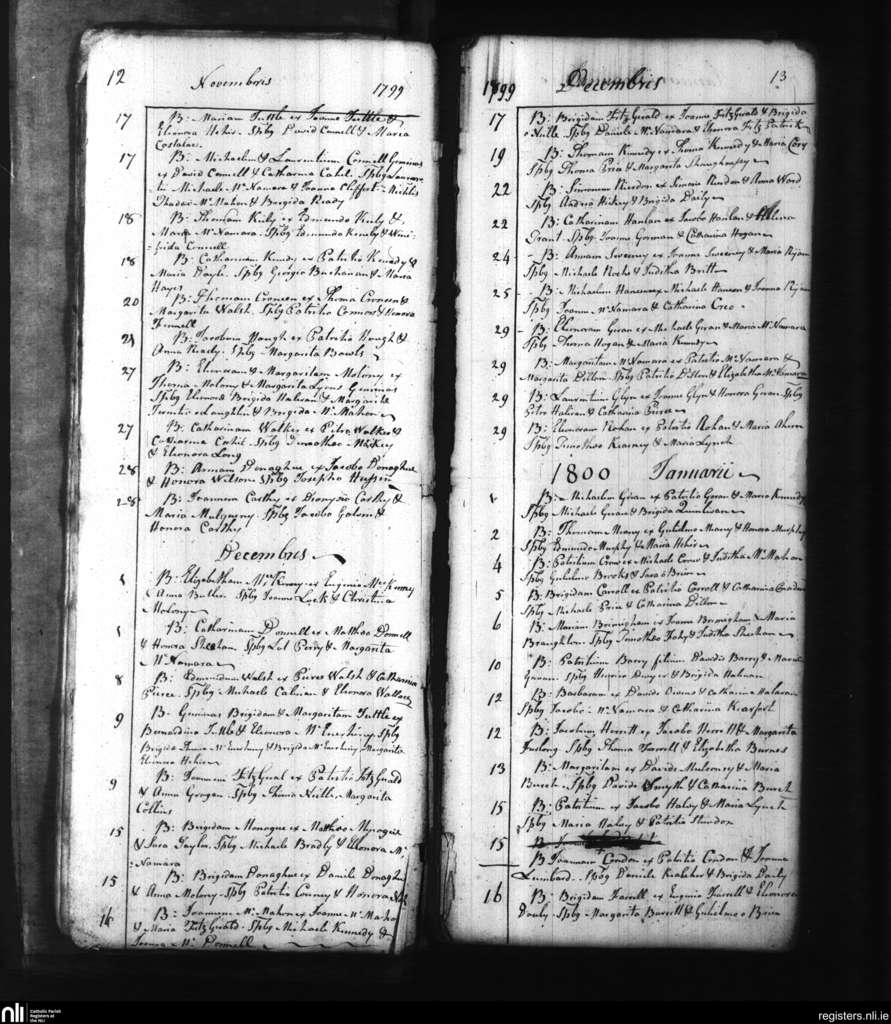 12 Novembris 1799
17 B: Mariam Tuttle ex Joanne Tuttle &
Eleonora Hehir. Spbg David Connell & Maria
17 B: Michaelem & Laurentium Connell Geminos
ex David Connell & Catharina Cahil. Spbg
Michaele McNamara & Joanna
Thadeo McMahon & Brigida Ready
18 B: Thomam Kirby ex Edmundo Kirby &
McNamara. Spbg Edmundo &
Connell
18 B: Catharinam Kennedy ex Patritio Kenedy &
Maria Doyle. Spbg Georgio Buchanan & Maria
Hayes
20 B: Thomam Croneen ex Thoma Croneen &
Margarita Walsh. Spbg Patritio Connors & Honora
24 B: Jacobum Hough ex Patritio Hough &
Anna Ready. Spbg Margarita Bowls
27 B: Elenoram & Margaritam Molony ex
Thoma Molony & Margarita Lyons Geminas
Spbg Brigida Halinan & Margarita
oLaughlin & Brigida McMahon
27 B: Catharinam Walker ex Petro Walker &
Catharina Spbg Timotheo Hickey
& Elenora Long
28 B: Annam Donaghue ex Jacobo Donaghue
& Honora Wilson Spbg Josepho
28 B: Joannem Carthy ex Dionysio Carthy &
Maria Mulqueny. Spbg Jacobo &
Honora Carthy
Decembris
1 B: Elizabetham ex Eugenio
Anna Spbg Joanne Lock & Christina
Molony
1 B: Catharinam Donnell ex Matthao Donnell
& Honora Sheehan. Spbg & Margarita
McNamara
8 B: Edmundum Walsh ex Pierce Walsh & Catharina
Pierce. Spbg Michaele & Elenora Wallace
9 B: Geminas Brigidam & Margaritam Tuttle ex
Bernardino Tuttle & Eleonora Spbg
Brigida & Brigida Margarita
9 B: Joannem FitzGerald ex Patritio FitzGerald
& Anna Grogan. Spbg Thoma Neille Margarita
Collins
15 B: Brigidam Monogue ex Matthao Monogue
& Sara Taylor. Spbg Michaele Bradly & Elenora Mc
Namara
15 B: Brigidam Donaghue ex Daniele Donaghue
& Anna Molony. Spbg Patritio & Honora
16 B: Joannem McMahon ex Joanne McMahon
& Maria FitzGerald. Spbg Michaele Kennedy &
Joanna McDonnell
1799 Decembris 13
17 B: Brigidam FitzGerald ex Joanne FitzGerald & Brigida
Neille. Spbg Daniele McNamara & Elenora FitzPatrick
19 B: Thomam Kennedy ex Thoma Kennedy & Maria
Spbg Thoma & Margarita Shaughnessy
22 B: Simonem Riordon ex Simone Riordon & Anna Ward
Spbg Hickey & Brigida Daily
22 B: Catharinam Hanlan ex Jacobo Hanlan &
Grant. Spbg Joanne Gorman & Catharina Hogan
24 B: Annam Sweeney ex Joanne Sweeney & Maria Ryan
Spbg Michaele Roche & Juditha Britt
25 B: Michaelem ex Michaele & Joanna Ryan
Spbg Joanne McNamara & Catharina Creo
29 B: Elenoram Geran ex Michaele Geran & Maria McNamara
Spbg Thoma Hogan & Maria Kennedy
29 B: Margaritam McNamara ex Patritio McNamara &
Margarita Dillon. Spbg Patritio Dillon & Elizabetha McNamara
29 B: Laurentium Glyn ex Joanne Glyn & Honora Geran Spbg
Petro Halinan & Catharina Pierce
29 B: Elenoram Rohan ex Patritio Rohan & Maria Ahern
Spbg Timotheo Kearney & Maria Lynch
1800 Januarii
1 B: Michaelem Geran ex Patritio Geran & Maria Kennedy
Spbg Michaele Geran & Brigida Quinlivan
2 B: Thomam Meany ex Gulielmo Meany & Honora Murphy
Spbg Edmundo Murphy & Maria Hehir
4 B: Patritium Crow ex Michaele Crow & Juditha McMahon
Spbg Gulielmo Brooks & Sara oBrien
5 B: Brigidam Carroll ex Patritio Carroll & Catharina
Spbg Michaele & Catharina Dillon
6 B: Mariam Birmingham ex Joanne Birmingham & Maria
Broughton. Spbg Timotheo Fahy & Juditha Sheehan
10 B: Patritium Barry filium Davidis Barry & Maria
Spbg Hugone Dwyer & Brigida Halinan
12 B: Barbaram ex Davide Owens & Catharina Halaran
Spbg Jacobo McNamara & Catharina
12 B: Jacobum Herrett ex Jacobo Herrett & Margarita
Furlong. Spbg Thoma Farrell & Elizabetha Burnes
13 B: Margaritam ex Davide Mulrony & Maria
Spbg Davide Smyth & Catharina
15 B: Patritium ex Jacobo Halsy & Maria Lynch
Spbg Maria Halsy & Patritio
15
B: Joannam Condon ex Patritio Condon & Joanna
Lumbard. Spbg Daniele Kelleher & Brigida Daily
16 B: Brigidam Farrell ex Eugenio Farrell & Elenora
Spbg Margarita Barrett & Gulielmo
nli Catholic Parish
Registers at
the NLI
registers.nli.ie